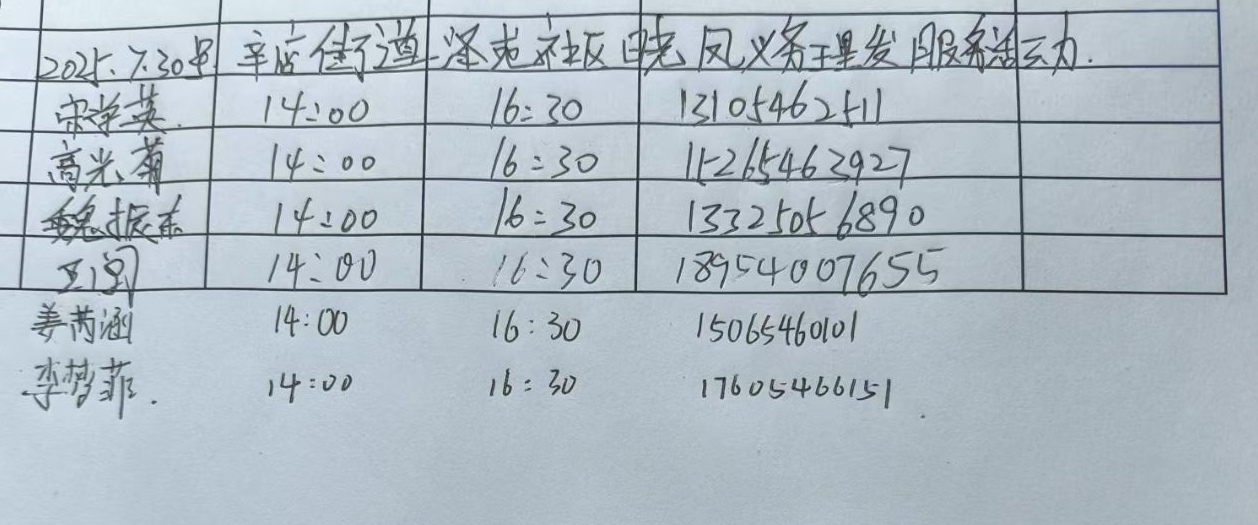 2025.7.30号 辛店街道 泽龙社区 晓风义务理发服务活动.
宋学英. 14:00 16:30 13105462511
高光菊 14:00 16:30 15265463927
魏振东 14:00 16:30 13325056890
王闯 14:00 16:30 18954007655
姜芮涵 14:00 16:30 15065460101
李梦菲. 14:00 16:30 17605466151